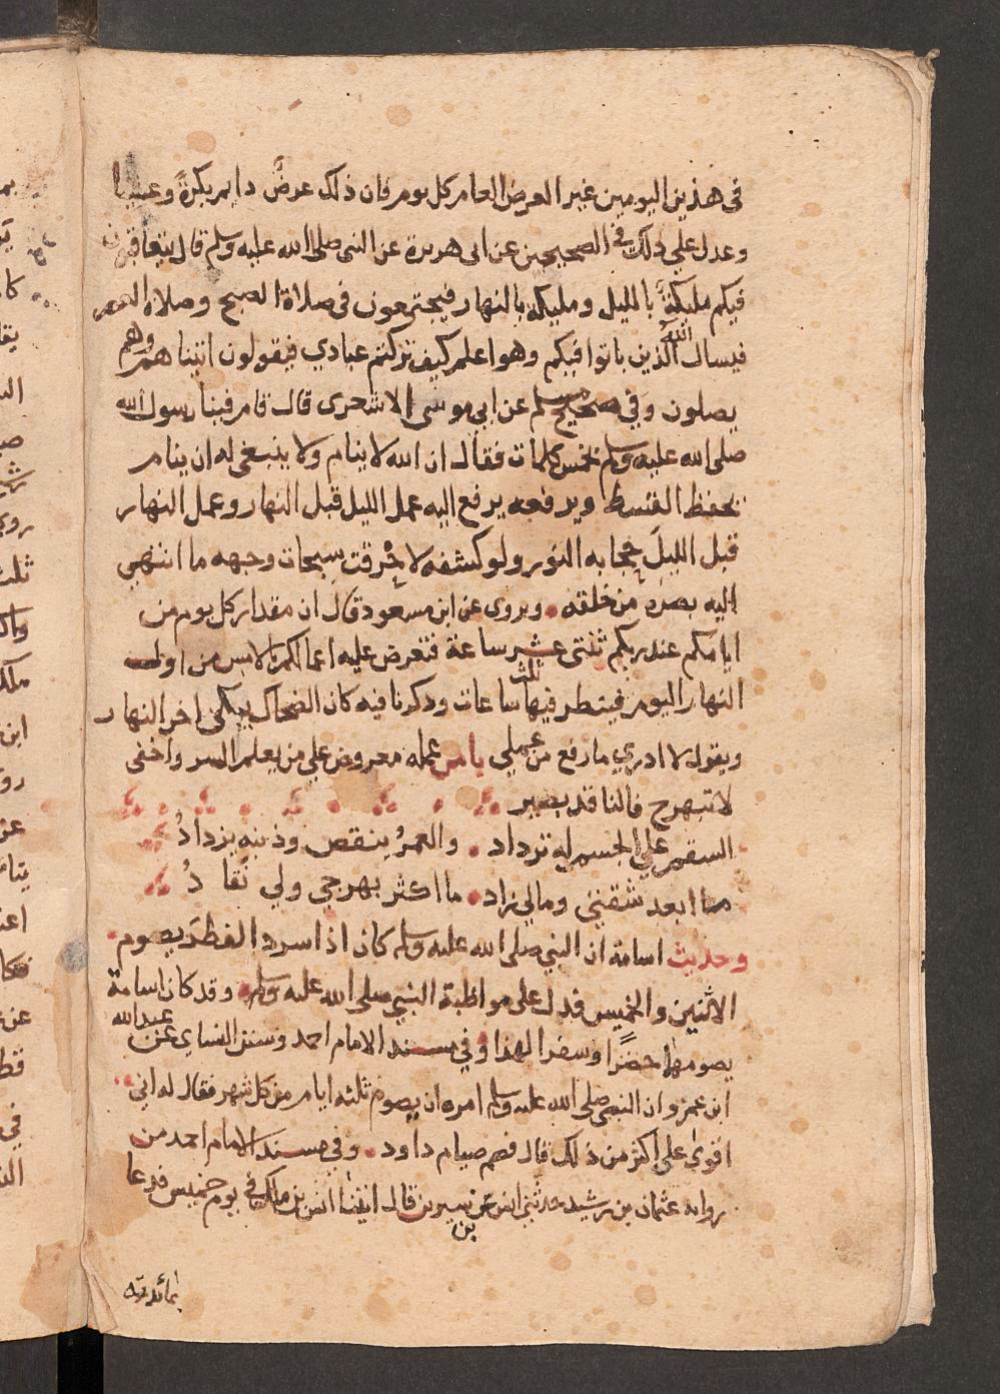 في هذين اليومين غير العرض العام كل يوم فان ذلك عرضٌ دايم بكرةً وعشيا
وعدل علي ذلك في الصحيحين عن ابي هريرة عن النبي صلى الله عليه وسلم قال يتعاقبون
فيكم مليكةً بالليل ومليكة بالنهار فيجتمعون في صلاة الصبح وصلاة العصر
فيسال الله الذين باتوا فيكم وهو اعلم كيف تركتم عبادي فيقولون اتيناهم وهم
يصلون وفي صحيح مسلم عن ابي موسى الاشعري قال قام فينا رسول الله
صلى الله عليه وسلم بخمس كلمات فقال ان الله لا ينام ولا ينبغي له ان ينام
يخفظ القسط ويرفعه يرفع اليه عمل الليل قبل النهار وعمل النهار
قبل الليل حجابه النور ولو كشفه لاحرقت سبحات وجهه ما انتهي
اليه بصره من خلقه ويروى عن ابن مسعود قال ان مقدار كل يوم من
ايامكم عند ربكم ثنتى عشر ساعة فتعرض عليه اعمالكم بالامس من اول
النهار اليوم فينظر فيها ثلث ساعات وذكرنا فيه كان الضحاك يبكي اخر النهار
ويقول لا ادري ما رفع من عملي يا من عمله معروض علي من يعلم السر واخفى
لا تبهرج فالناقد بصير
السقم علي الجسم له ترداد والعمرُ ينقص وذنبه يزدادُ
ما ابعد شقتي ومالي زاد ما اكثر بهرجي ولي نقادُ
وحديث اسامة ان النبي صلى الله عليه وسلم كان اذا اسرد الفطر يصوم
الاثنين والخميس فدل على مواظبة النبي صلى الله عليه وسلم وقد كان اسامة
يصومهما حضرًا وسفرا لهذا وفي مسند الامام احمد وسنن النساي عن عبد الله
ابن عمرو ان النبي صلى الله عليه وسلم امره ان يصوم ثلثه ايام من كل شهر فقال له اني
اقوى على اكثر من ذلك قال فصم صيام داود وفي مسند الامام احمد من
رواية عثمان بن رشيد حدثني انس بن سيرين قال اتينا انس بن مالك في يوم خميس فدعا
بمائدته